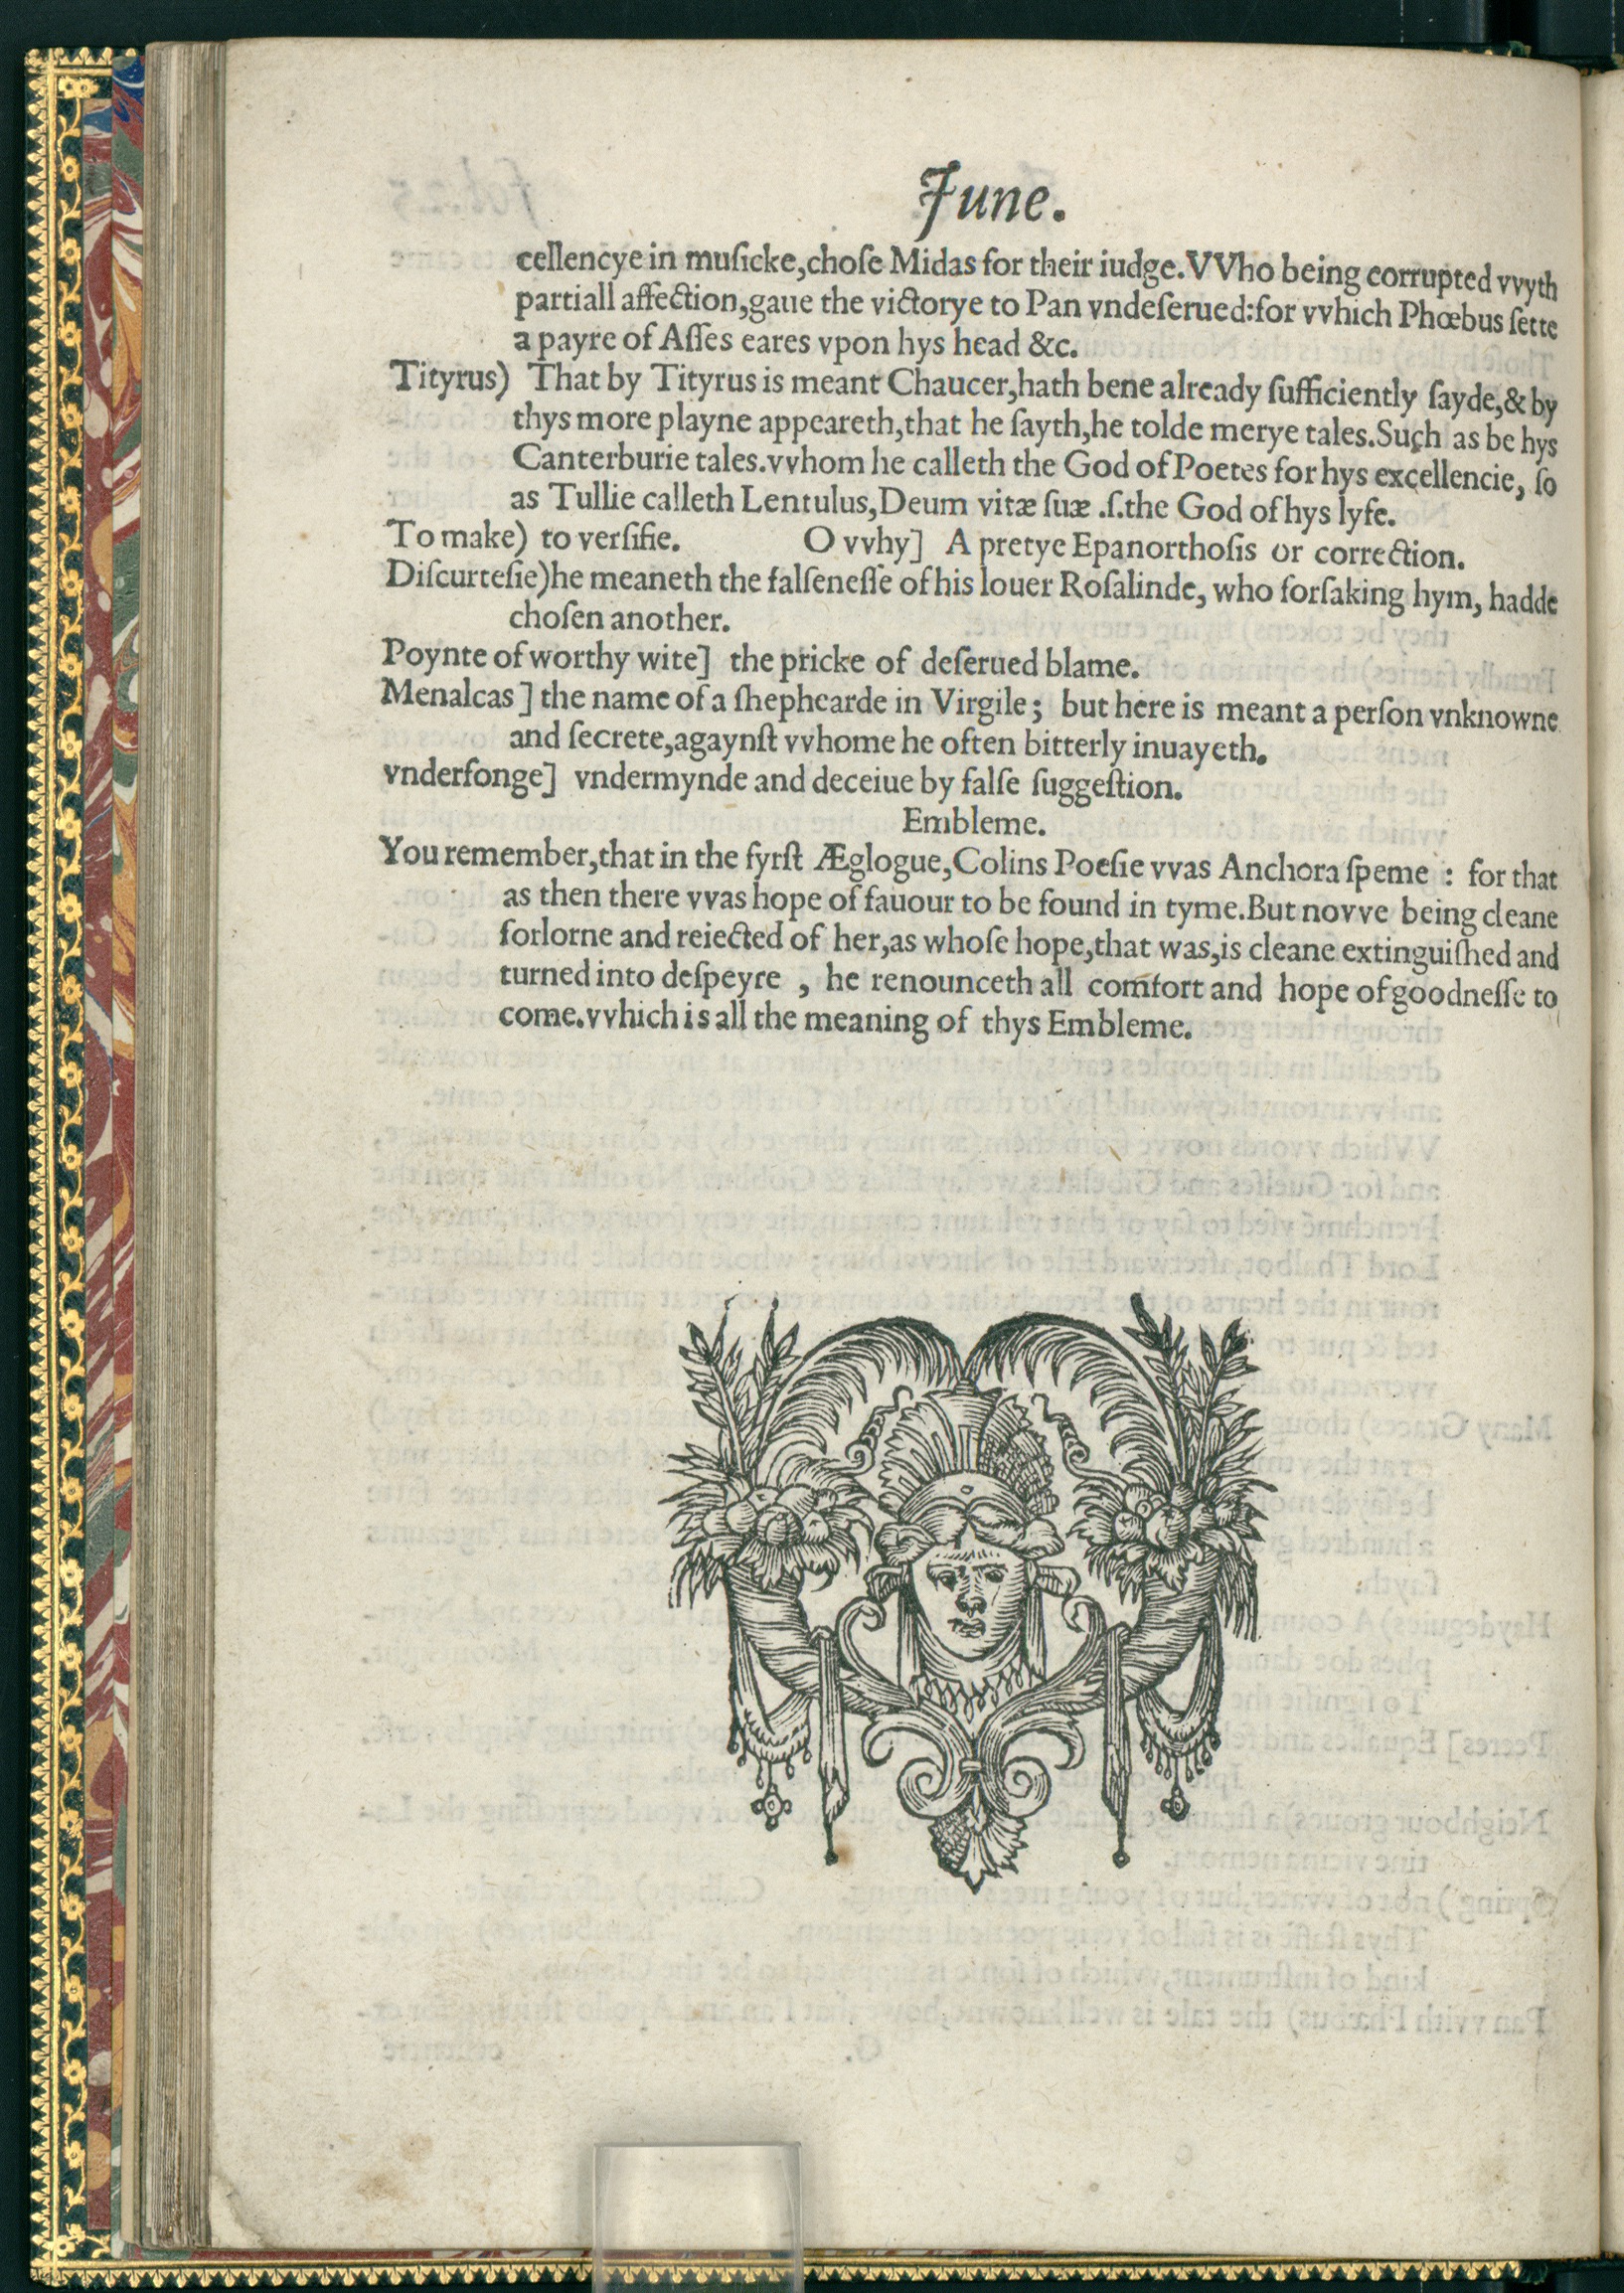 June.
cellencye in muſicke,choſe Midas for their iudge.VVho being corrupted vvyth
partiall affection,gaue the victorye to Pan vndeſerued:for vvhich Phœbus ſette
a payre of Aſſes eares vpon hys head &c.
Tityrus) That by Tityrus is meant Chaucer,hath bene already ſufficiently ſayde,& by
thys more playne appeareth,that he ſayth,he tolde merye tales.Such as be hys
Canterburie tales.vvhom he calleth the God of Poetes for hys excellencie, ſo
as Tullie calleth Lentulus,Deum vitæ ſuæ .ſ.the God of hys lyfe.
To make) to verſifie. O vvhy] A pretye Epanorthoſis or correction.
Diſcurteſie)he meaneth the falſeneſſe of his louer Roſalinde, who forſaking hym, hadde
choſen another.
Poynte of worthy wite] the pricke of deſerued blame.
Menalcas ] the name of a ſhephearde in Virgile; but here is meant a perſon vnknowne
and ſecrete,agaynſt vvhome he often bitterly inuayeth.
vnderfonge] vndermynde and deceiue by falſe ſuggeſtion.
Embleme.
You remember,that in the fyrſt Æglogue,Colins Poeſie vvas Anchora ſpeme : for that
as then there vvas hope of fauour to be found in tyme.But novve being cleane
forlorne and reiected of her,as whoſe hope,that was,is cleane extinguiſhed and
turned into deſpeyre , he renounceth all comfort and hope of goodneſſe to
come.vvhich is all the meaning of thys Embleme.